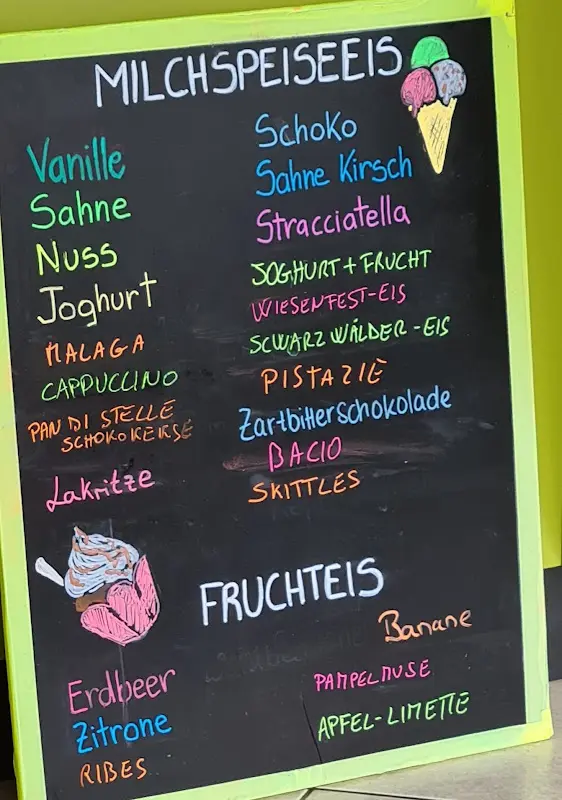 MILCHSPEISEEIS
Vanille
Sahne
Nuss
Joghurt
MALAGA
CAPPUCCINO
PAN DI STELLE
SCHOKOKEKSE
Lakritze
Schoko
Sahne Kirsch
Stracciatella
JOGHURT + FRUCHT
WIESENFEST-EIS
SCWARZ WÄLDER-EIS
PISTAZIE
Zartbitterschokolade
BACIO
SKITTLES
FRUCHTEIS
Erdbeer
Zitrone
RIBES
Banane
PAMPELMUSE
APFEL-LIMETTE